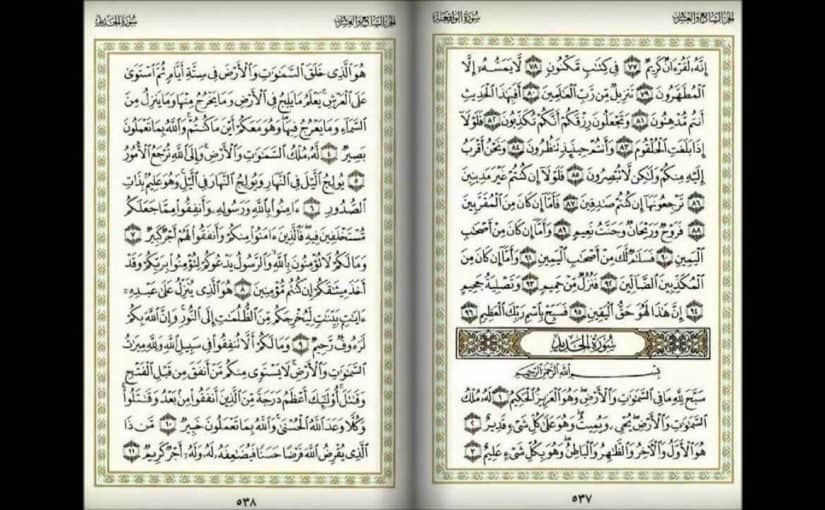 الجزء السابع والعشرون
سورة الواقعة
إِنَّهُۥ لَقُرْءَانٌ كَرِيمٌ ٧٧ فِى كِتَٰبٍ مَّكْنُونٍ ٧٨ لَّا يَمَسُّهُۥٓ إِلَّا
ٱلْمُطَهَّرُونَ ٧٩ تَنزِيلٌ مِّن رَّبِّ ٱلْعَٰلَمِينَ ٨٠ أَفَبِهَٰذَا ٱلْحَدِيثِ
أَنتُم مُّدْهِنُونَ ٨١ وَتَجْعَلُونَ رِزْقَكُمْ أَنَّكُمْ تُكَذِّبُونَ ٨٢ فَلَوْلَآ
إِذَا بَلَغَتِ ٱلْحُلْقُومَ ٨٣ وَأَنتُمْ حِينَئِذٍ تَنظُرُونَ ٨٤ وَنَحْنُ أَقْرَبُ
إِلَيْهِ مِنكُمْ وَلَٰكِن لَّا تُبْصِرُونَ ٨٥ فَلَوْلَآ إِن كُنتُمْ غَيْرَ مَدِينِينَ
٨٦ تَرْجِعُونَهَآ إِن كُنتُمْ صَٰدِقِينَ ٨٧ فَأَمَّآ إِن كَانَ مِنَ ٱلْمُقَرَّبِينَ
٨٨ فَرَوْحٌ وَرَيْحَانٌ وَجَنَّتُ نَعِيمٍ ٨٩ وَأَمَّآ إِن كَانَ مِنْ أَصْحَٰبِ
ٱلْيَمِينِ ٩٠ فَسَلَٰمٌ لَّكَ مِنْ أَصْحَٰبِ ٱلْيَمِينِ ٩١ وَأَمَّآ إِن كَانَ مِنَ
ٱلْمُكَذِّبِينَ ٱلضَّآلِّينَ ٩٢ فَنُزُلٌ مِّنْ حَمِيمٍ ٩٣ وَتَصْلِيَةُ جَحِيمٍ
٩٤ إِنَّ هَٰذَا لَهُوَ حَقُّ ٱلْيَقِينِ ٩٥ فَسَبِّحْ بِٱسْمِ رَبِّكَ ٱلْعَظِيمِ ٩٦
سُورَةُ الحَدِيدِ
بِسْمِ ٱللَّهِ ٱلرَّحْمَٰنِ ٱلرَّحِيمِ
سَبَّحَ لِلَّهِ مَا فِى ٱلسَّمَٰوَٰتِ وَٱلْأَرْضِ وَهُوَ ٱلْعَزِيزُ ٱلْحَكِيمُ ١ لَهُۥ مُلْكُ
ٱلسَّمَٰوَٰتِ وَٱلْأَرْضِ يُحْىِۦ وَيُمِيتُ وَهُوَ عَلَىٰ كُلِّ شَىْءٍ قَدِيرٌ ٢
هُوَ ٱلْأَوَّلُ وَٱلْءَاخِرُ وَٱلظَّٰهِرُ وَٱلْبَاطِنُ وَهُوَ بِكُلِّ شَىْءٍ عَلِيمٌ ٣
٥٣٧
الجزء السابع والعشرون
سورة الحديد
هُوَ ٱلَّذِى خَلَقَ ٱلسَّمَٰوَٰتِ وَٱلْأَرْضَ فِى سِتَّةِ أَيَّامٍ ثُمَّ ٱسْتَوَىٰ
عَلَى ٱلْعَرْشِ يَعْلَمُ مَا يَلِجُ فِى ٱلْأَرْضِ وَمَا يَخْرُجُ مِنْهَا وَمَا يَنزِلُ مِنَ
ٱلسَّمَآءِ وَمَا يَعْرُجُ فِيهَا وَهُوَ مَعَكُمْ أَيْنَ مَا كُنتُمْ وَٱللَّهُ بِمَا تَعْمَلُونَ
بَصِيرٌ ٤ لَّهُۥ مُلْكُ ٱلسَّمَٰوَٰتِ وَٱلْأَرْضِ وَإِلَى ٱللَّهِ تُرْجَعُ ٱلْأُمُورُ
٥ يُولِجُ ٱلَّيْلَ فِى ٱلنَّهَارِ وَيُولِجُ ٱلنَّهَارَ فِى ٱلَّيْلِ وَهُوَ عَلِيمٌۢ بِذَاتِ
ٱلصُّدُورِ ٦ ءَامِنُوا۟ بِٱللَّهِ وَرَسُولِهِۦ وَأَنفِقُوا۟ مِمَّا جَعَلَكُم
مُّسْتَخْلَفِينَ فِيهِ فَٱلَّذِينَ ءَامَنُوا۟ مِنكُمْ وَأَنفَقُوا۟ لَهُمْ أَجْرٌ كَبِيرٌ ٧
وَمَا لَكُمْ لَا تُؤْمِنُونَ بِٱللَّهِ وَٱلرَّسُولُ يَدْعُوكُمْ لِتُؤْمِنُوا۟ بِرَبِّكُمْ وَقَدْ
أَخَذَ مِيثَٰقَكُمْ إِن كُنتُم مُّؤْمِنِينَ ٨ هُوَ ٱلَّذِى يُنَزِّلُ عَلَىٰ عَبْدِهِۦٓ
ءَايَٰتٍۭ بَيِّنَٰتٍ لِّيُخْرِجَكُم مِّنَ ٱلظُّلُمَٰتِ إِلَى ٱلنُّورِ وَإِنَّ ٱللَّهَ بِكُمْ
لَرَءُوفٌ رَّحِيمٌ ٩ وَمَا لَكُمْ أَلَّا تُنفِقُوا۟ فِى سَبِيلِ ٱللَّهِ وَلِلَّهِ مِيرَٰثُ
ٱلسَّمَٰوَٰتِ وَٱلْأَرْضِ لَا يَسْتَوِى مِنكُم مَّنْ أَنفَقَ مِن قَبْلِ ٱلْفَتْحِ
وَقَٰتَلَ أُو۟لَٰٓئِكَ أَعْظَمُ دَرَجَةً مِّنَ ٱلَّذِينَ أَنفَقُوا۟ مِنۢ بَعْدُ وَقَٰتَلُوا۟
وَكُلًّا وَعَدَ ٱللَّهُ ٱلْحُسْنَىٰ وَٱللَّهُ بِمَا تَعْمَلُونَ خَبِيرٌ ١٠ مَّن ذَا
ٱلَّذِى يُقْرِضُ ٱللَّهَ قَرْضًا حَسَنًا فَيُضَٰعِفَهُۥ لَهُۥ وَلَهُۥٓ أَجْرٌ كَرِيمٌ ١١
٥٣٨